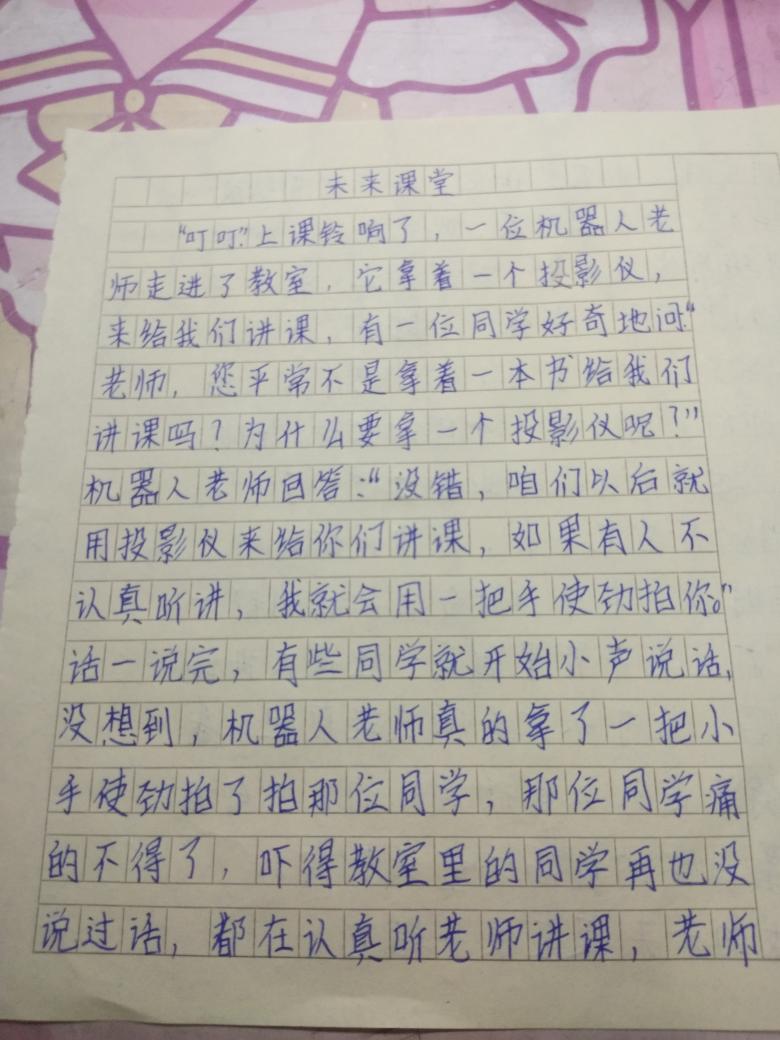 未来课堂
“叮叮”上课铃响了，一位机器人老
师走进了教室，它拿着一个投影仪，
来给我们讲课，有一位同学好奇地问：“
老师，您平常不是拿着一本书给我们
讲课吗？为什么要拿一个投影仪呢？”
机器人老师回答：“没错，咱们以后就
用投影仪来给你们讲课，如果有人不
认真听讲，我就会用一把手使劲拍你。”
话一说完，有些同学就开始小声说话，
没想到，机器人老师真的拿了一把小
手使劲拍了拍那位同学，那位同学痛
的不得了，吓得教室里的同学再也没
说过话，都在认真听老师讲课，老师